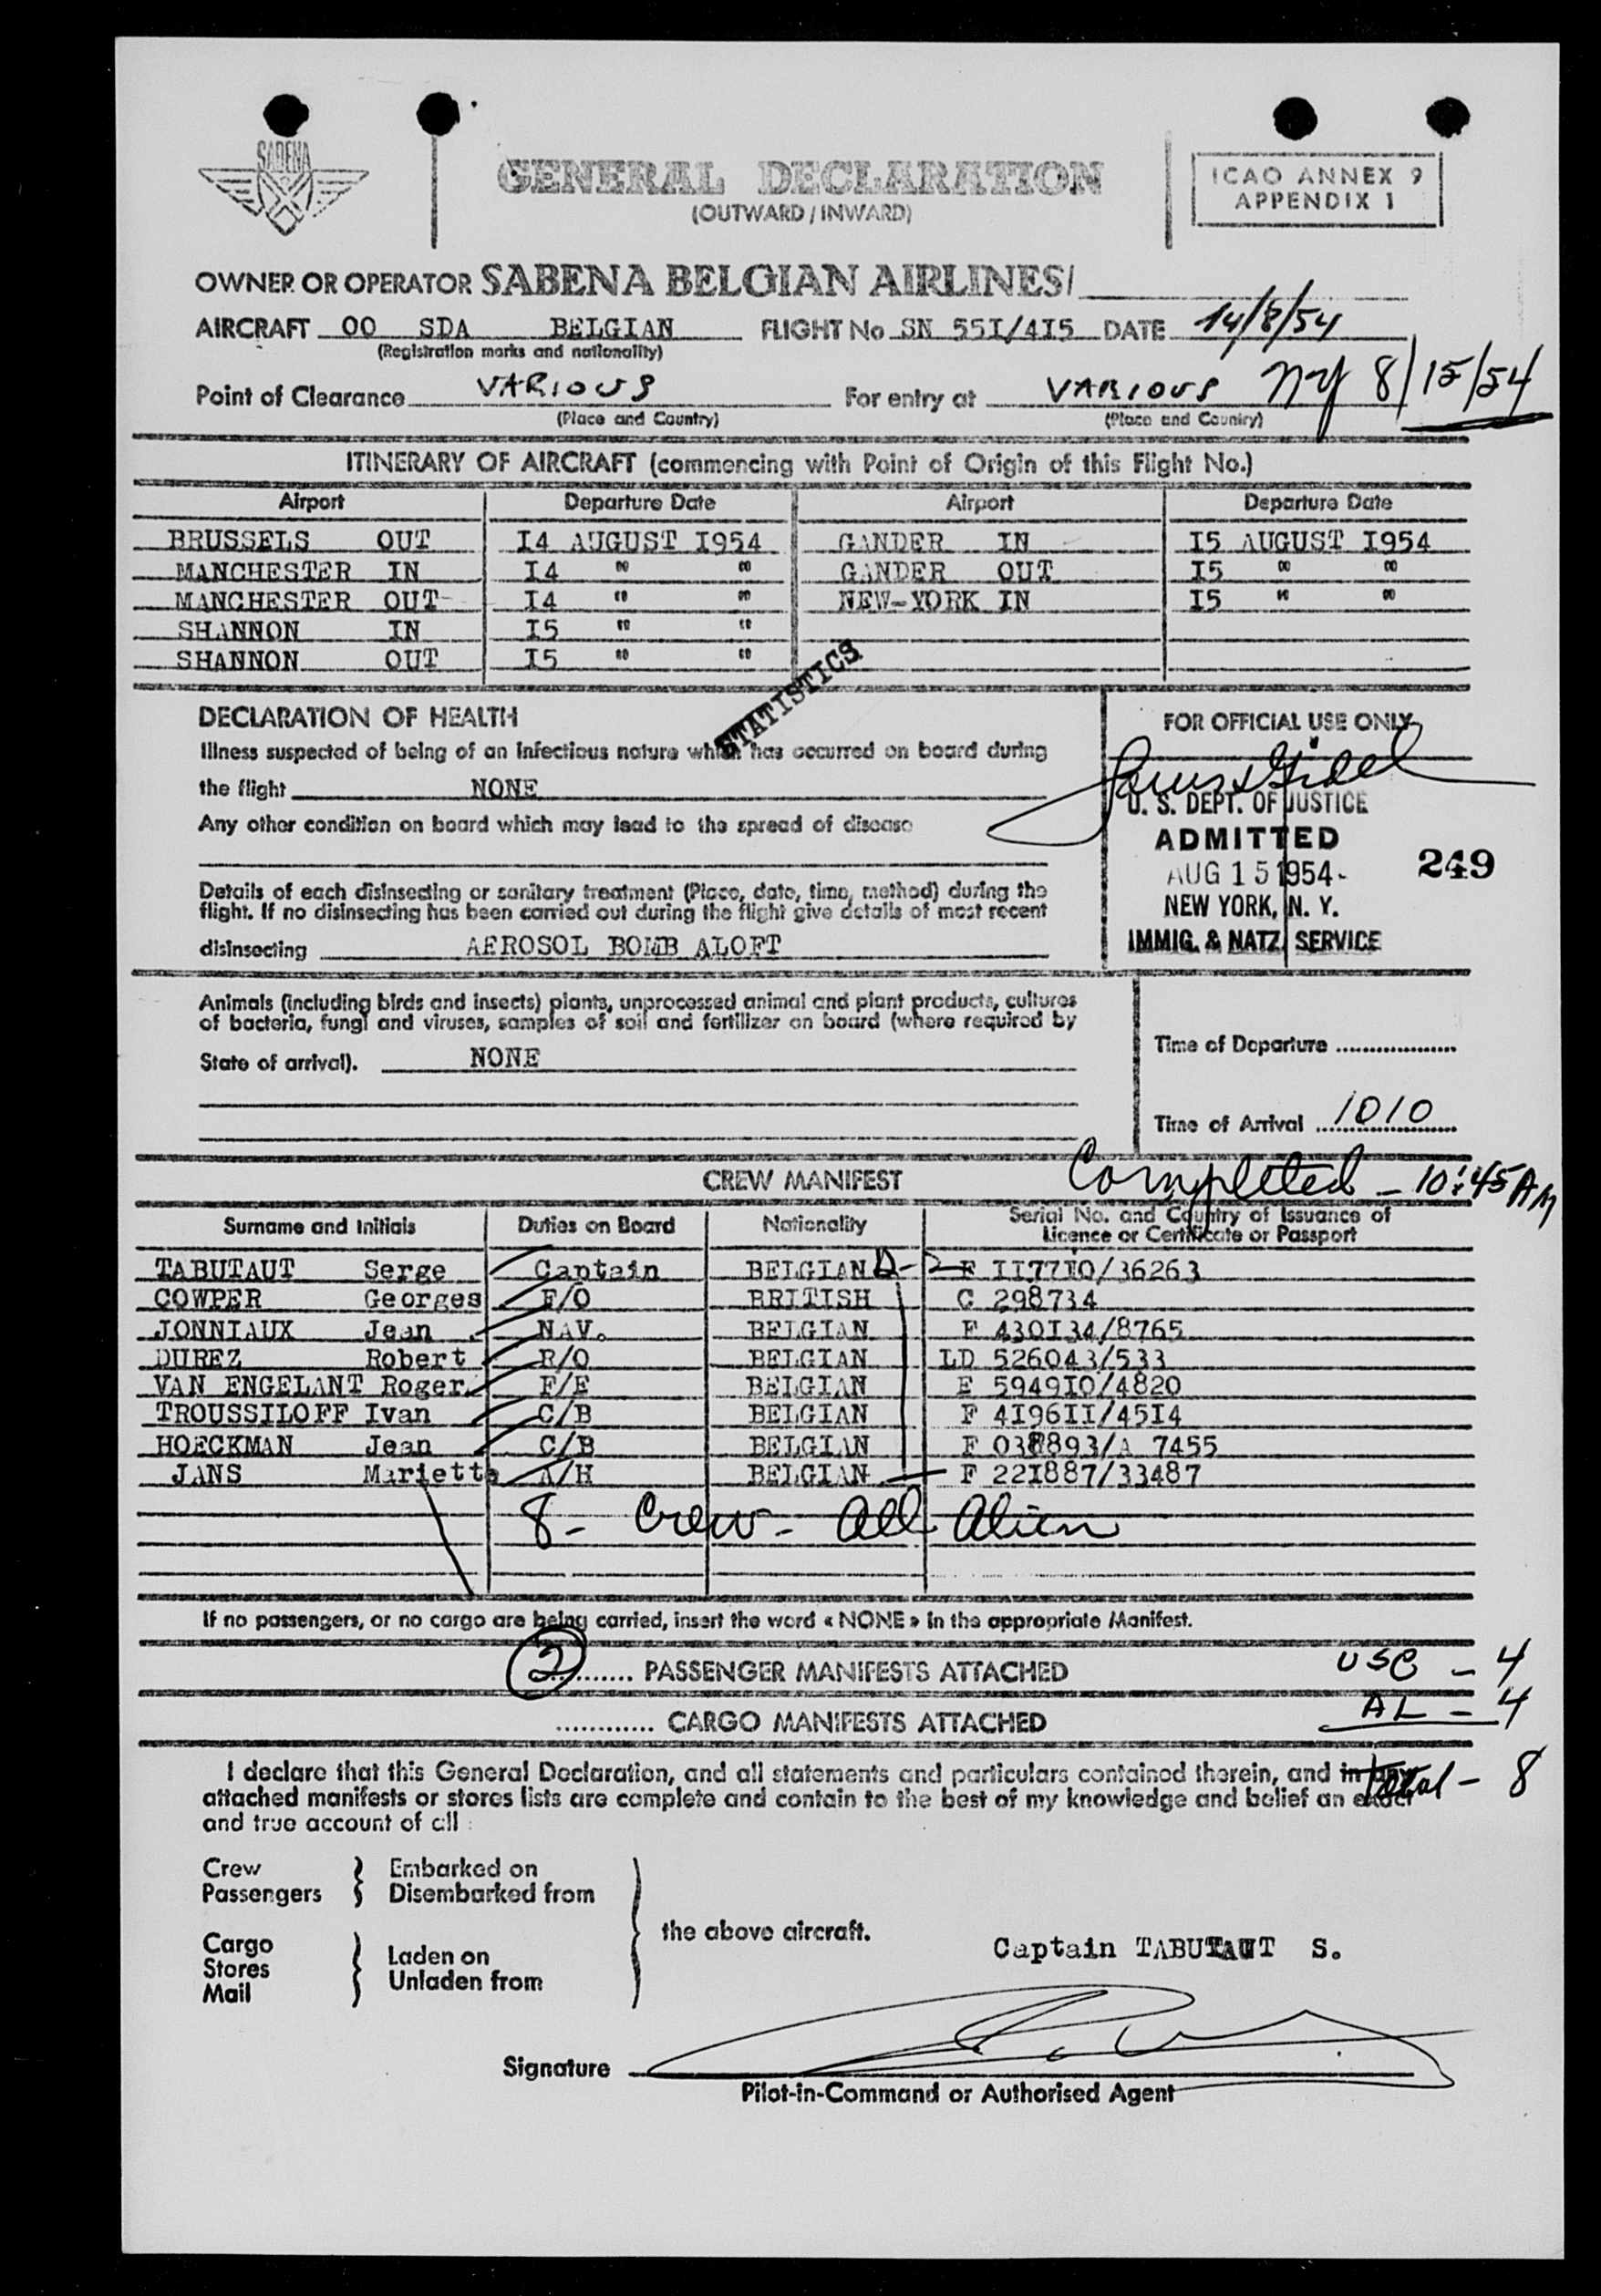 SABENA
GENERAL DECLARATION
(OUTWARD / INWARD)
ICAO ANNEX 9
APPENDIX 1
OWNER OR OPERATOR SABENA BELGIAN AIRLINES/
AIRCRAFT OO SDA BELGIAN FLIGHT No SN 55I/4I5 DATE 14/8/54
(Registration marks and nationality)
Point of Clearance VARIOUS For entry at VARIOUS NY 8/15/54
(Place and Country) (Place and Country)
ITINERARY OF AIRCRAFT (commencing with Point of Origin of this Flight No.)
Airport Departure Date Airport Departure Date
BRUSSELS OUT I4 AUGUST I954 GANDER IN I5 AUGUST I954
MANCHESTER IN I4 " " GANDER OUT I5 " "
MANCHESTER OUT I4 " " NEW-YORK IN I5 " "
SHANNON IN I5 " "
SHANNON OUT I5 " "
STATISTICS
DECLARATION OF HEALTH
Illness suspected of being of an infectious nature which has occurred on board during
the flight NONE
Any other condition on board which may lead to the spread of disease
Details of each disinsecting or sanitary treatment (Place, date, time, method) during the
flight. If no disinsecting has been carried out during the flight give details of most recent
disinsecting AEROSOL BOMB ALOFT
FOR OFFICIAL USE ONLY
U. S. DEPT. OF JUSTICE
ADMITTED
AUG 15 1954
NEW YORK, N. Y.
IMMIG. & NATZ. SERVICE
249
Animals (including birds and insects) plants, unprocessed animal and plant products, cultures
of bacteria, fungi and viruses, samples of soil and fertilizer on board (where required by
State of arrival). NONE
Time of Departure ..................
Time of Arrival 1010
CREW MANIFEST
Completed - 10:45 AM
Surname and Initials Duties on Board Nationality Serial No. and Country of Issuance of
Licence or Certificate or Passport
TABUTAUT Serge Captain BELGIAN D-2 F II77I0/36263
COWPER Georges F/O BRITISH C 298734
JONNIAUX Jean NAV. BELGIAN F 430I34/8765
DUREZ Robert R/O BELGIAN LD 526043/533
VAN ENGELANT Roger F/E BELGIAN E 5949I0/4820
TROUSSILOFF Ivan C/B BELGIAN F 4I96II/45I4
HOECKMAN Jean C/B BELGIAN F 038893/A 7455
JANS Mariette A/H BELGIAN F 22I887/33487
8 - Crew - All Alien
If no passengers, or no cargo are being carried, insert the word « NONE » in the appropriate Manifest.
2 .......... PASSENGER MANIFESTS ATTACHED USC - 4
............ CARGO MANIFESTS ATTACHED AL - 4
Total - 8
I declare that this General Declaration, and all statements and particulars contained therein, and in any
attached manifests or stores lists are complete and contain to the best of my knowledge and belief an exact
and true account of all :
Crew
Passengers
Embarked on
Disembarked from
Cargo
Stores
Mail
Laden on
Unladen from
the above aircraft.
Captain TABUTAUT S.
Signature
Pilot-in-Command or Authorised Agent